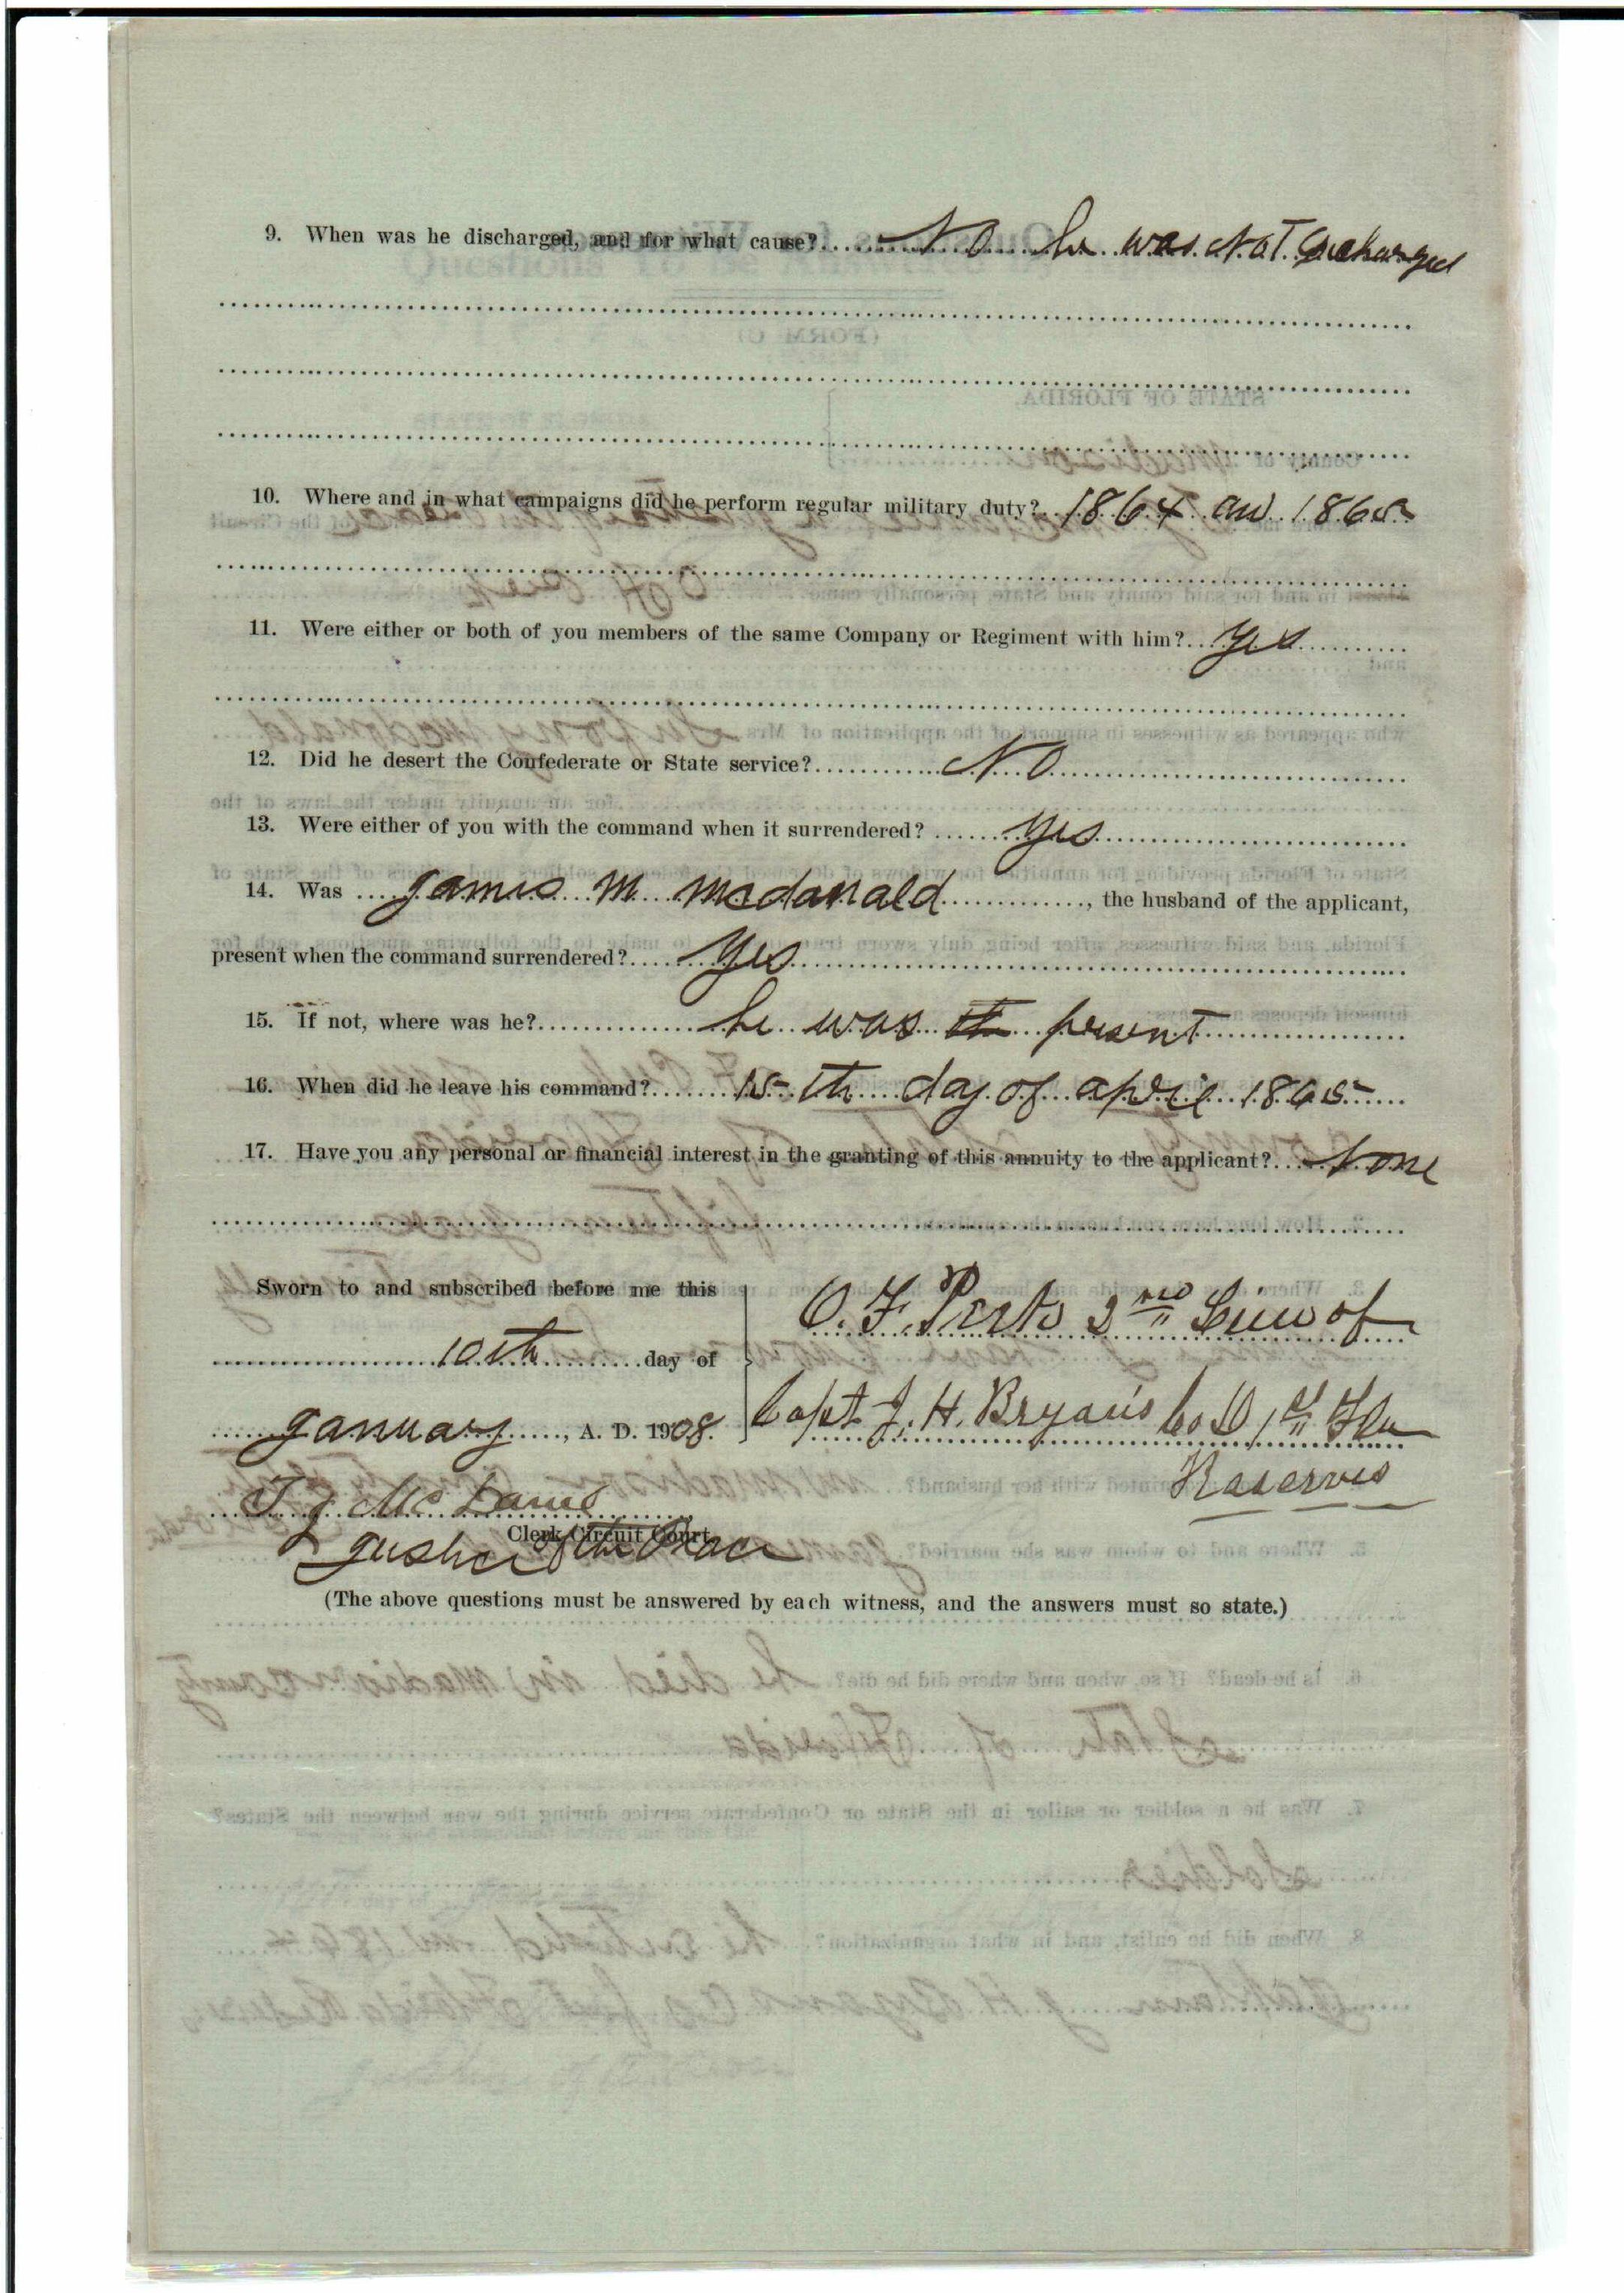 9. When was he discharged, and for what cause? No he was Not
10. Where and in what campaigns did he perform regular military duty? 1864 an 1865
11. Were either or both of you members of the same Company or Regiment with him? yes
12. Did he desert the Confederate or State service? No
13. Were either of you with the command when it surrendered? yes
14. Was James M mcdonald, the husband of the applicant,
present when the command surrendered? yes
15. If not, where was he? he was present
16. When did he leave his command? 15th day of april 1865
17. Have you any personal or financial interest in the granting of this annuity to the applicant? None
Sworn to and subscribed before me this
10th day of
January, A. D. 1908.
O. F. 2nd of
Capt J. H. Bryan's Co D 1st Fla
Reserves
T J
Clerk Circuit Court.
of the
(The above questions must be answered by each witness, and the answers must so state.)